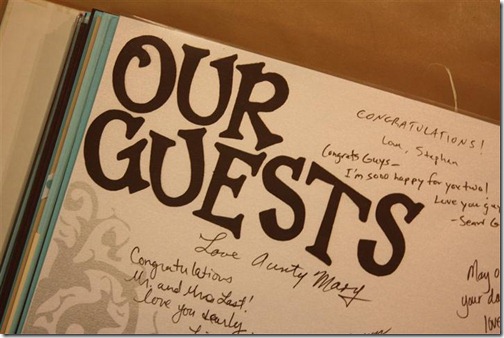 OUR
GUESTS
CONGRATULATIONS!
Love, Stephen
Congrats Guys-
I'm sooo happy for you two!
Love you
Love Aunty Mary
Congratulations
Mr. and Mrs. Last!
love you dearly
May
your
love